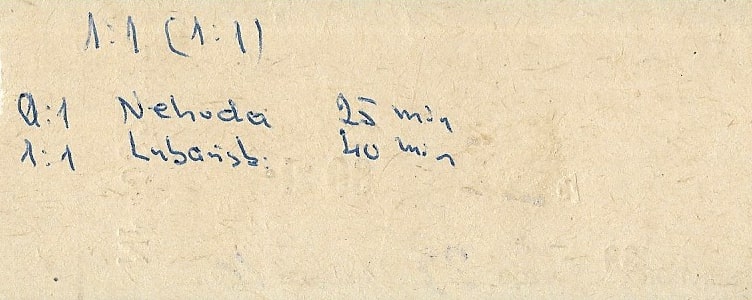 1:1 (1:1)
0:1 Nehoda 25 min
1:1 Lubański 40 min